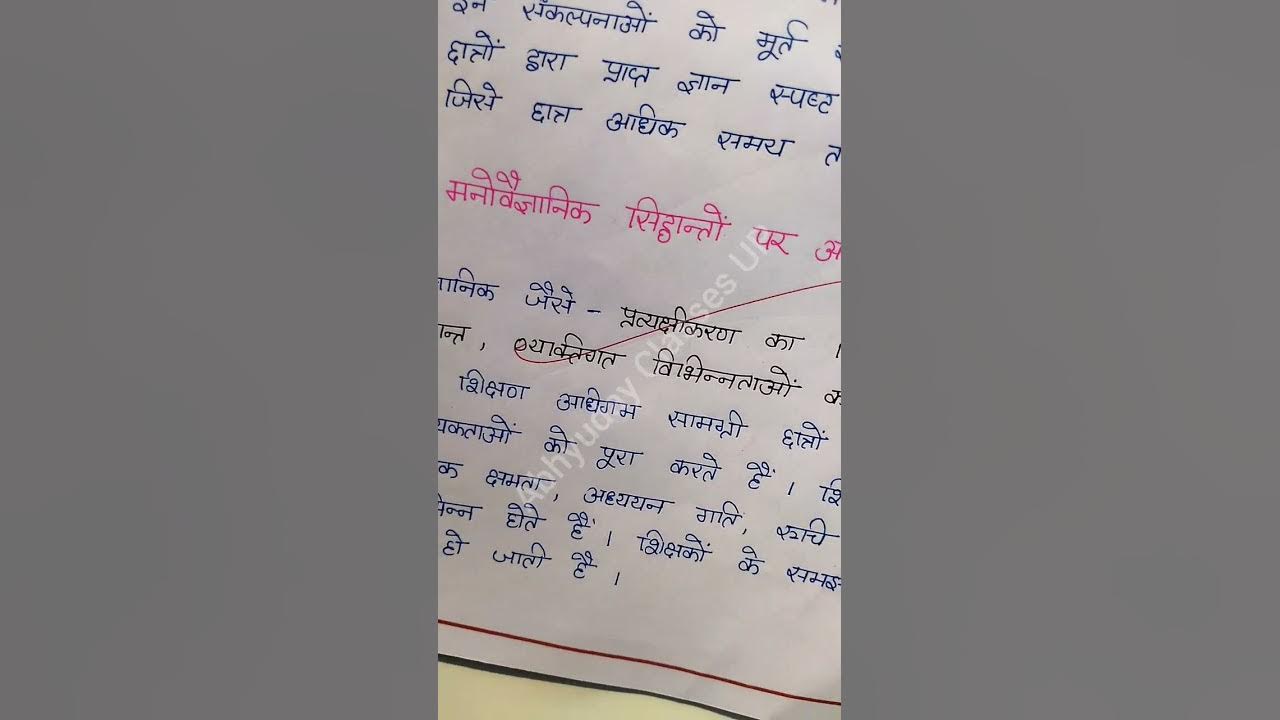 इन संकल्पनाओं को मूर्त
छात्रों द्वारा प्राप्त ज्ञान स्पष्ट
जिसे छात्र अधिक समय त
मनोवैज्ञानिक सिद्धान्तों पर अ
ानिक जैसे - प्रत्यक्षीकरण का
न्त, व्यक्तिगत विभिन्नताओं क
शिक्षण अधिगम सामग्री छात्रों
यकताओं को पूरा करते हैं । शि
क क्षमता, अध्ययन गति, रूचि
भिन्न होते हैं । शिक्षकों के समक्ष
हो जाती है ।
Abhyuday Classes UP